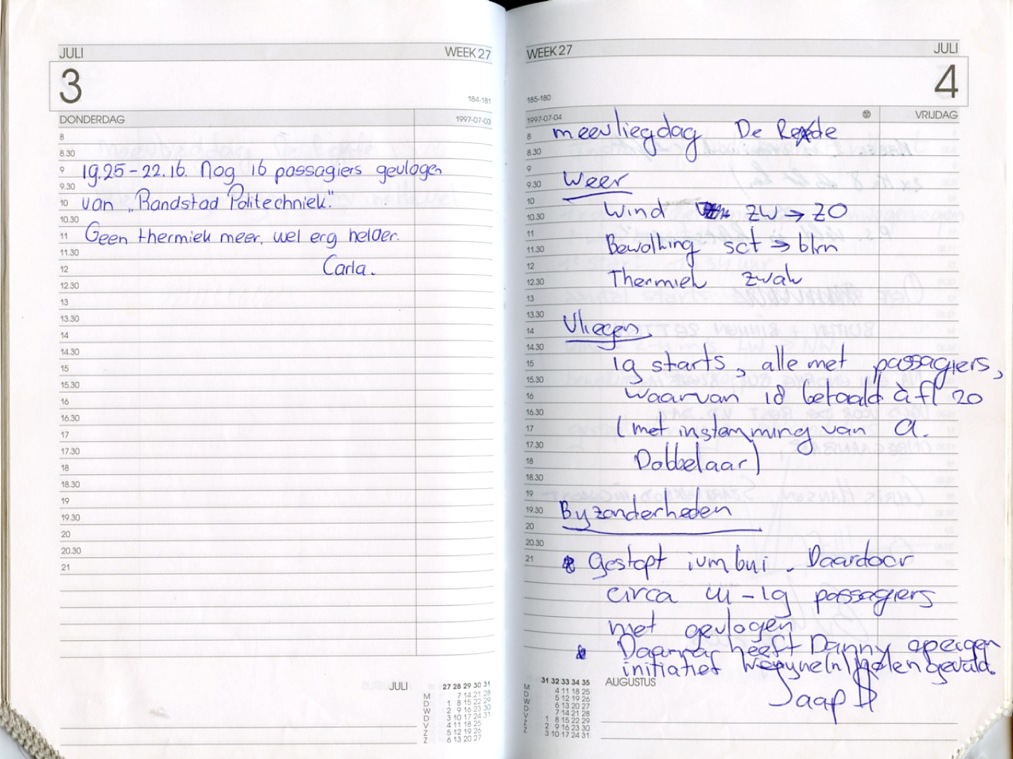 JULI WEEK 27
3
184-181
DONDERDAG 1997-07-03
8
8.30
9 19.25 - 22.16. Nog 16 passagiers gevlogen
9.30
10 van "Randstad Politechniek".
10.30
11 Geen thermiek meer, wel erg helder.
11.30
12 Carla.
12.30
13
13.30
14
14.30
15
15.30
16
16.30
17
17.30
18
18.30
19
19.30
20
20.30
21
JULI 27 28 29 30 31
M 7 14 21 28
D 1 8 15 22 29
W 2 9 16 23 30
D 3 10 17 24 31
V 4 11 18 25
Z 5 12 19 26
Z 6 13 20 27
WEEK 27 JULI
4
185-180
1997-07-04 VRIJDAG
8 meevliegdag De
8.30
9
9.30 Weer
10
10.30 Wind ZW → ZO
11
11.30 Bewolking sct → bkn
12
12.30 Thermiek zwak
13
13.30
14 Vliegen
14.30
15 19 starts, alle met passagiers,
15.30
16 waarvan 18 betaald à fl 20
16.30
17 (met instemming van A.
17.30
18 Dobbelaar)
18.30
19
19.30 Byzonderheden
20
20.30
21 Gestopt ivm bui. Daardoor
circa passagiers
niet gevlogen
Daarna heeft Danny op eigen
initiatief
Jaap
31 32 33 34 35 AUGUSTUS
M 4 11 18 25
D 5 12 19 26
W 6 13 20 27
D 7 14 21 28
V 1 8 15 22 29
Z 2 9 16 23 30
Z 3 10 17 24 31